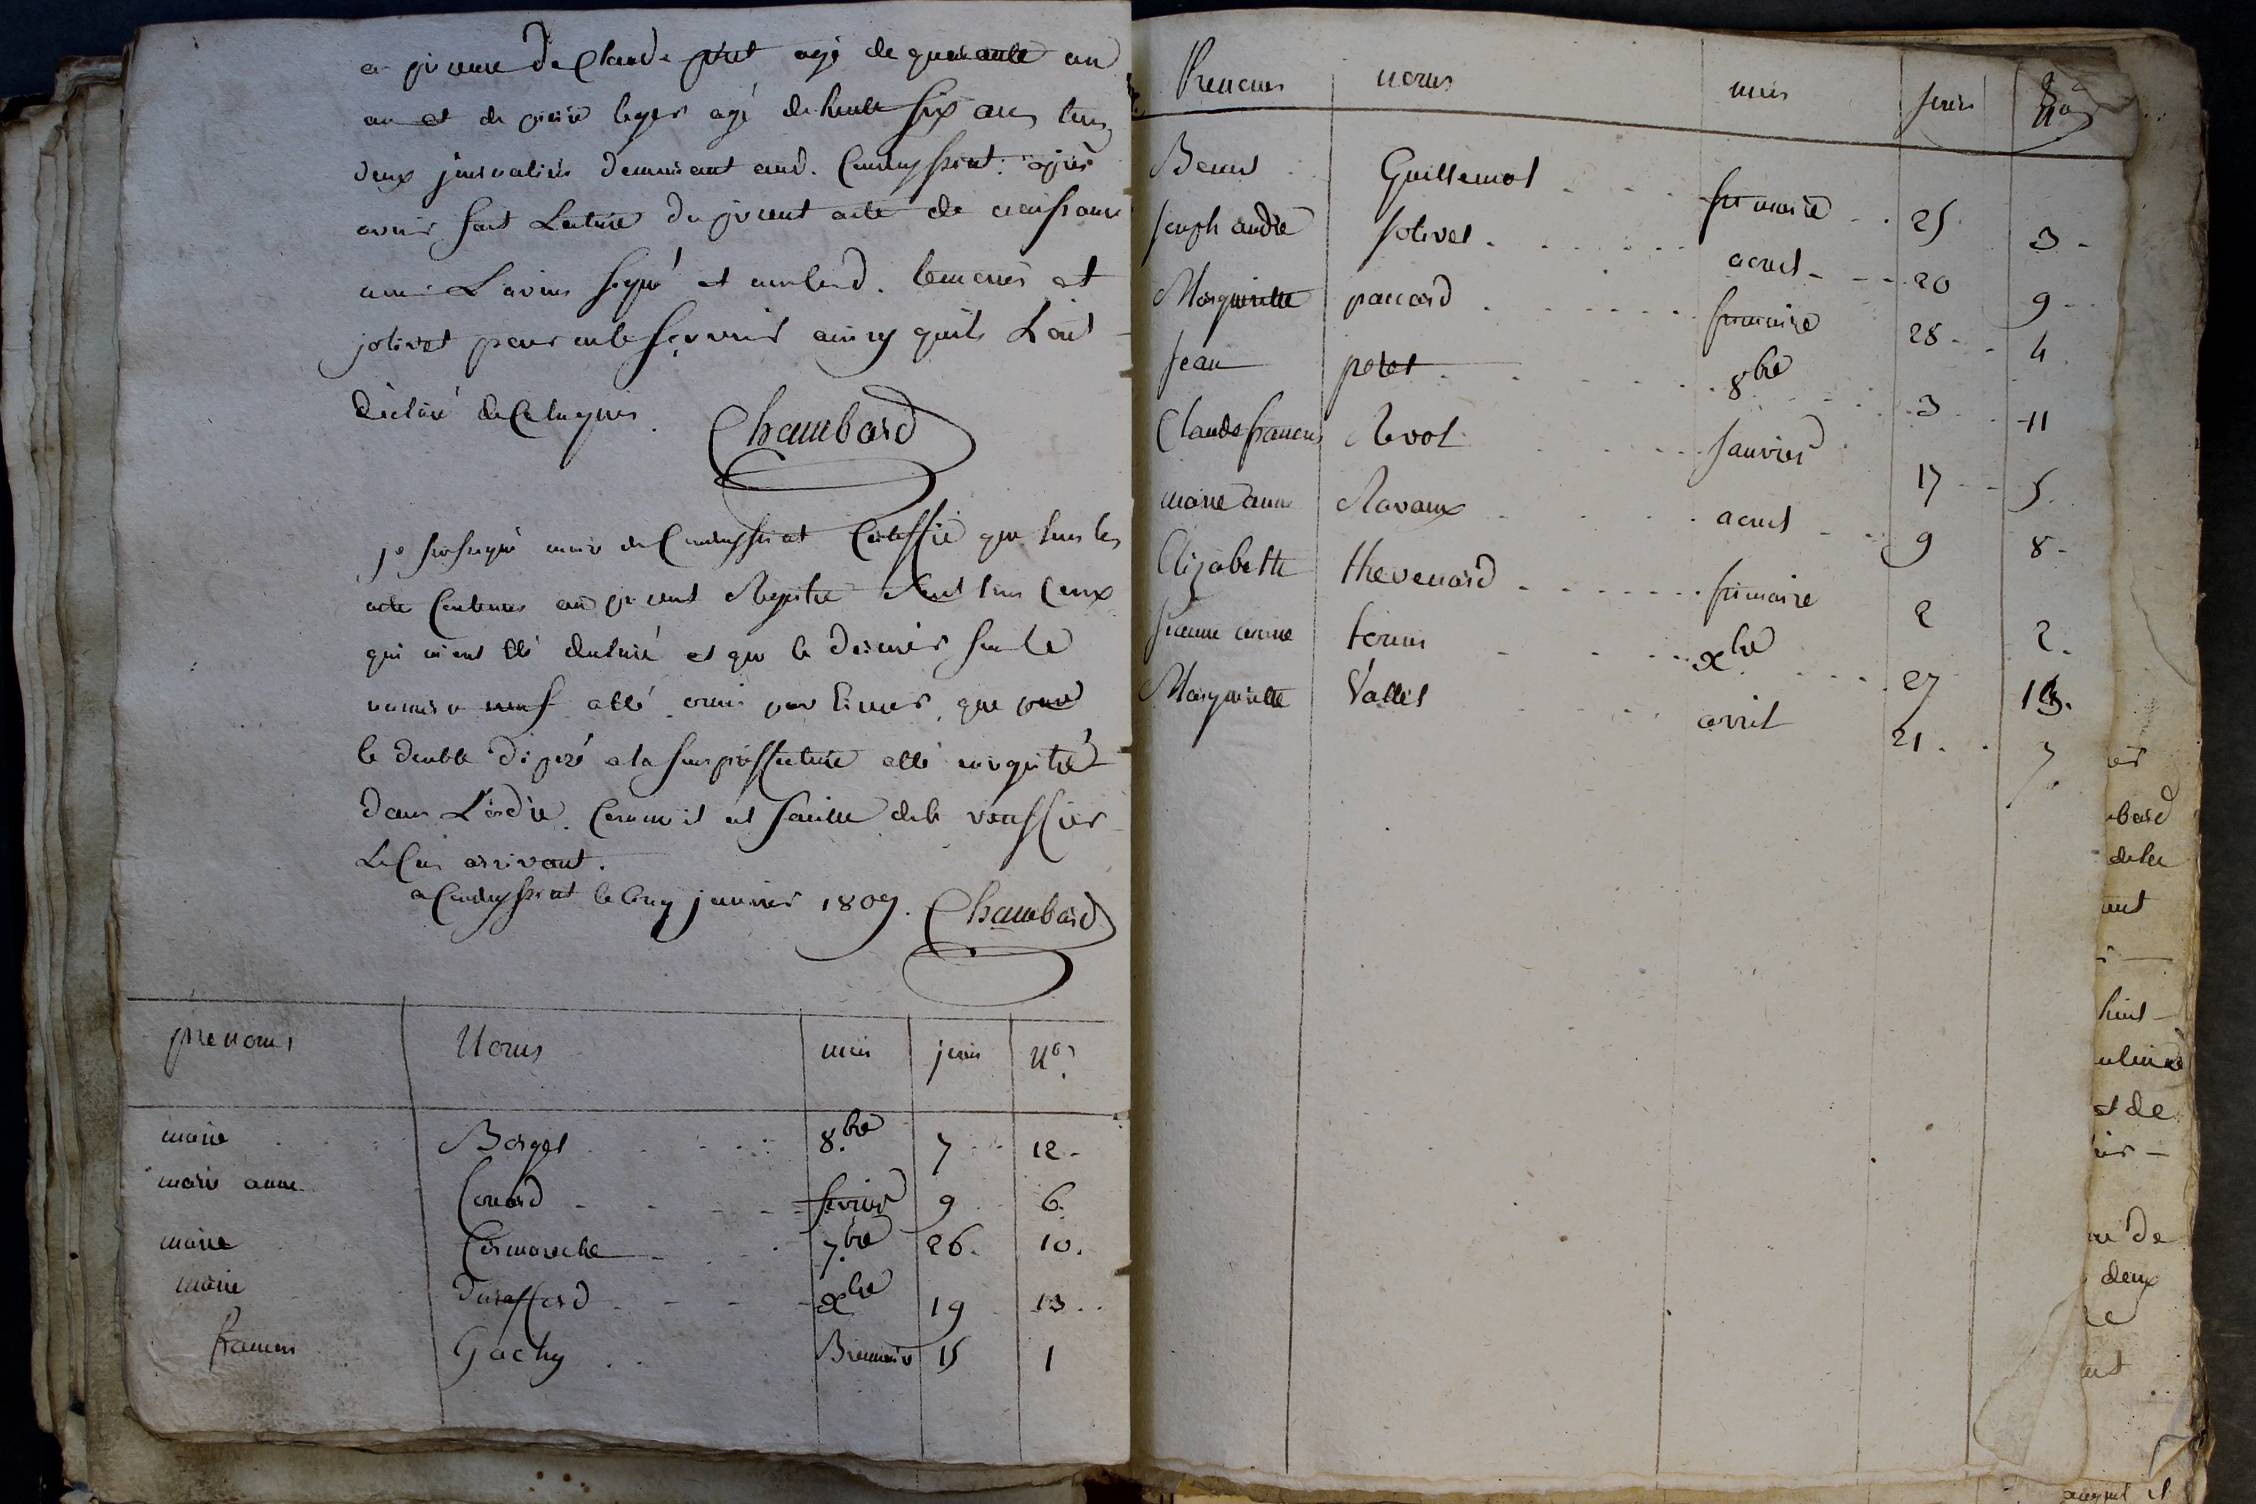 en presence de Claude pitet agé de quarante un
an et de pierre leger agé de trente six ans tous
deux journaliers demeurant aud. Condeyssiat: après
avoir fait Lecture du present acte de naissance
avons L'avons signé et non led. temoins et
jolivet pour ne le sçavoir ainsy quils L'ont
declaré de Ce Enquis. Chambard
je soussigné maire de Condeyssiat Certiffie que tous les
acte Contenus au present Registre sont tous Ceux
qui m'ont été declaré et que le dernier sous le
numero neuf a été omis par Erreur, que pour
le double deposé a la sousprefecture a été enregistré
dans L'ordre. Comme il est facille de le veriffier
Le Cas arrivant.
a Condeyssiat le Cinq janvier 1807. Chambard
prenoms Noms mois jours Nos
marie Borget 8.bre 7 12
marie anne Conard fevrier 9 6
marie Cormareche 7.bre 26 10
marie Durafford Xbre 19 13
francois Gachy Brumaire 15 1
Prenoms noms mois jours Nos
Benoit Guillemot frimaire 25 3
Joseph andré Jolivet aoust 20 9
Marguerite paccard frimaire 28 4
Jean petet 8bre 3 11
Claude francois Revol Janvier 17 5
marie anne Ravaux aoust 9 8
Elizabette thevenard frimaire 2 2
Jeanne marie tenin Xbre 27 14
Marguerite Vallet avril 21 7
bard
de la
ant
huit
et de
deux